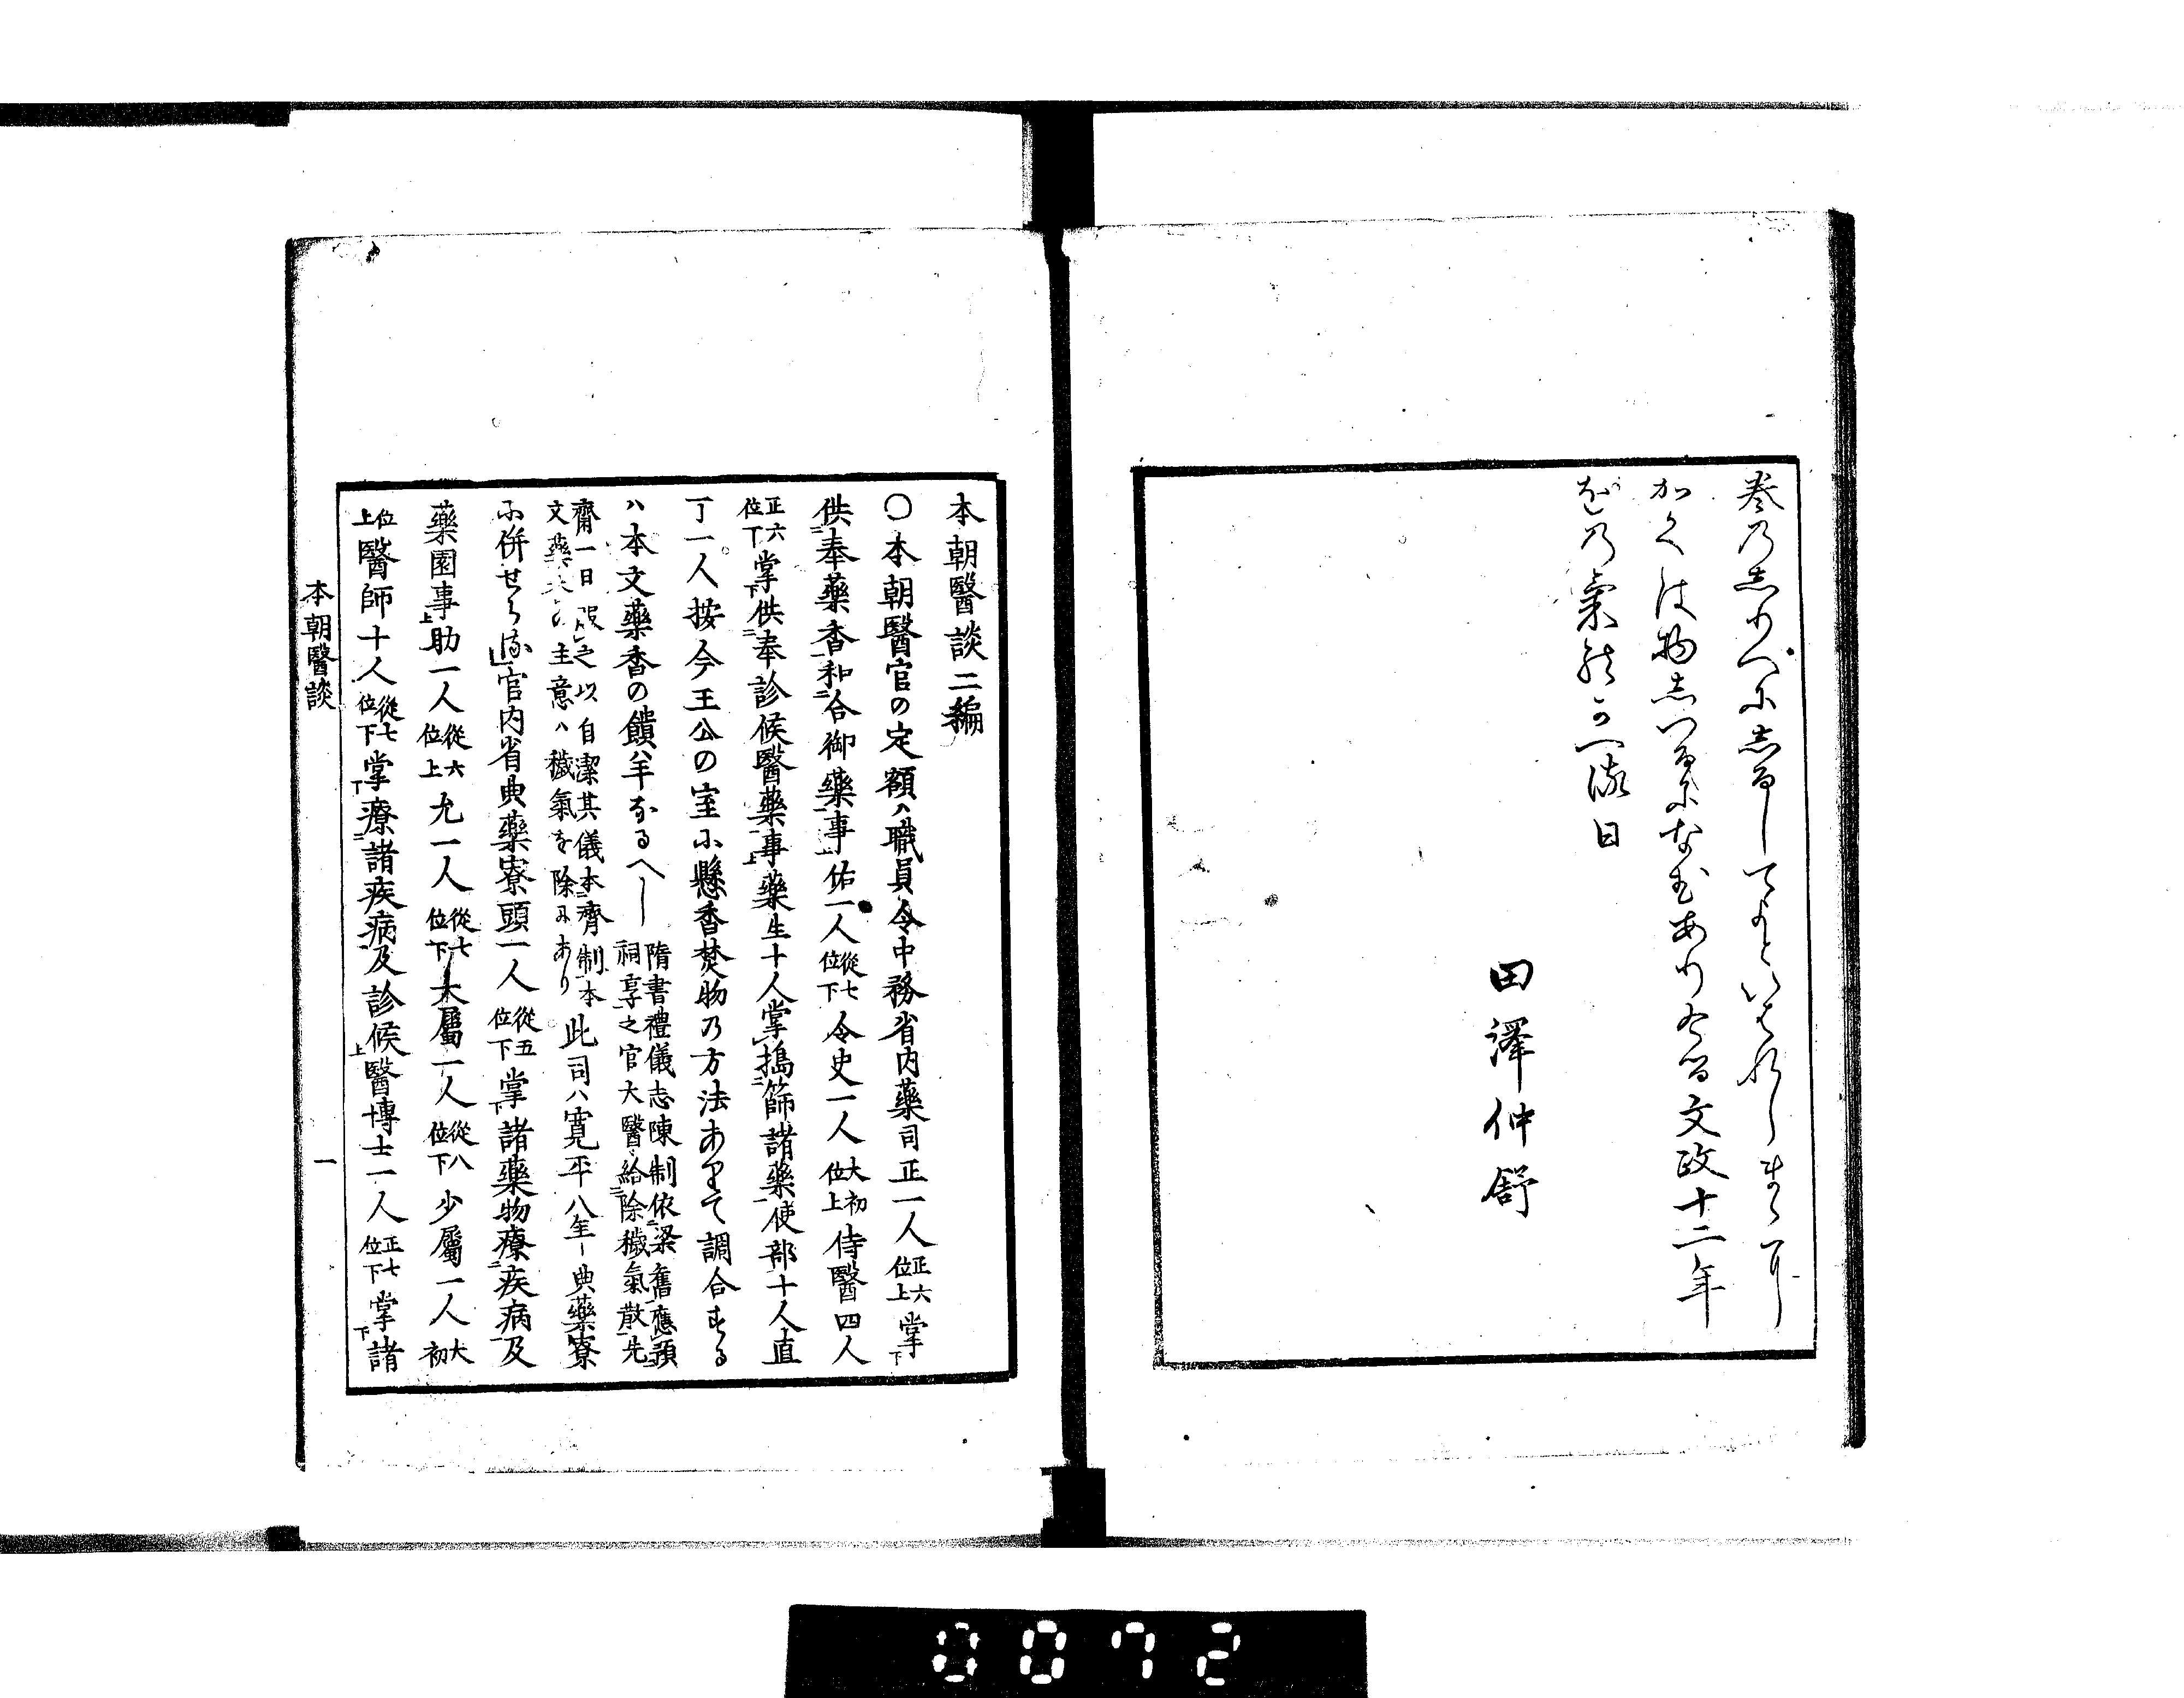 巻乃しりへにしるしてよと
かくは物しつるになむあり
文政十二年
日
田澤仲舒
本朝醫談二編
〇本朝醫官の定額ハ職員令中務省内藥司正一人正六位上掌下
供二奉藥香一和二合御藥一事上佑一人從七位下令史一人大初位上侍醫四人
正六位下掌下供二奉診候醫藥一事上藥生十人掌レ搗二篩諸藥一使部十人直
丁一人按今王公の室に懸香焚物乃方法ありて調合する
ハ本文藥香の饋羊なるへし隋書禮儀志陳制依二梁舊一應レ預二祠享一之官大醫給二除穢氣散一先
齋一日服レ之以自潔其儀本二齊制一本文藥香の主意ハ穢氣を除にあり此司ハ寛平八年レ典藥寮
に併せらる官内省典藥寮頭一人從五位下掌下諸藥物療二疾病一及
藥園事上助一人從六位上允一人從七位下大屬一人從八位下少屬一人大初
位上醫師十人從七位下掌下療二諸疾病一及診候上醫博士一人正七位下掌下諸
本朝醫談
一
0072